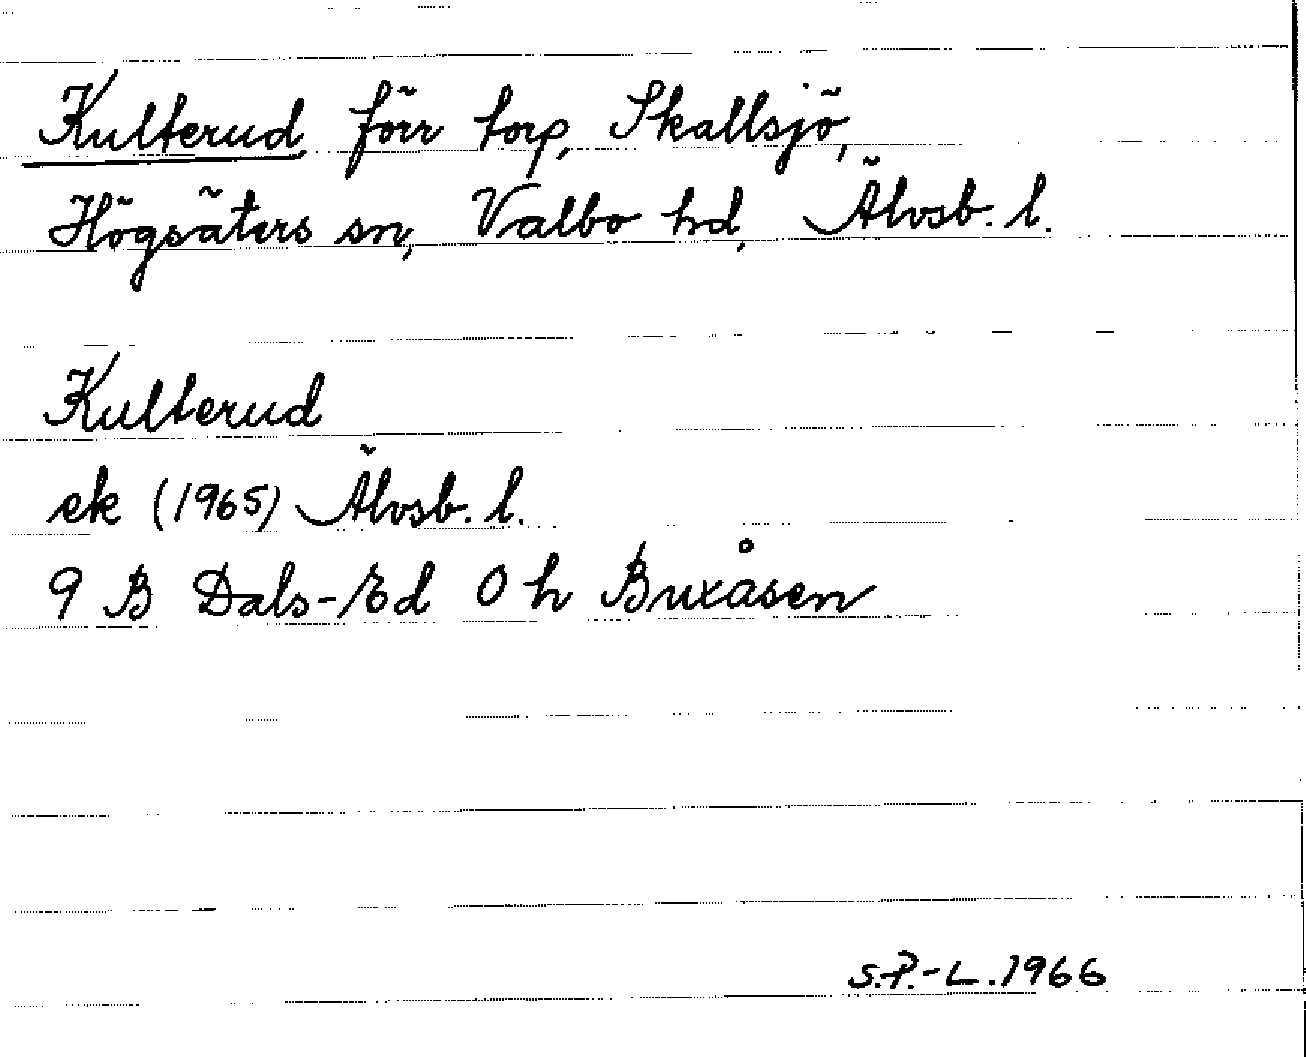 Kulterud förr torp, Skallsjö,
Högsäters sn, Valbo hd, Älvsb. l.
Kulterud
ek (1965) Älvsb. l.
9 B Dals-Ed 0 h Buxåsen
S.P.-L. 1966